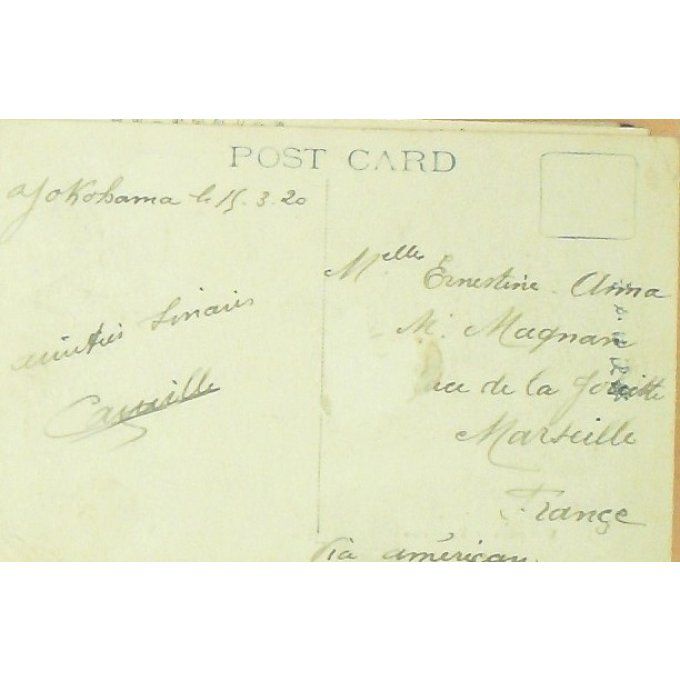 POST CARD
Yokohama le 15.3.20
amitiés
Camille
Melles Ernestine. Anna
M. Magnan
de la Joliette
Marseille
France
Via américan.